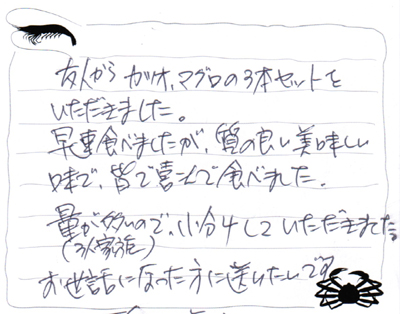 友人から カツオ、マグロの3本セットを
いただきました。
早速食べましたが、質の良い美味しい
味で、皆で喜んで食べました。
量が多いので、小分けしていただきました。
(3人家族)
お世話になった方に送りたいです